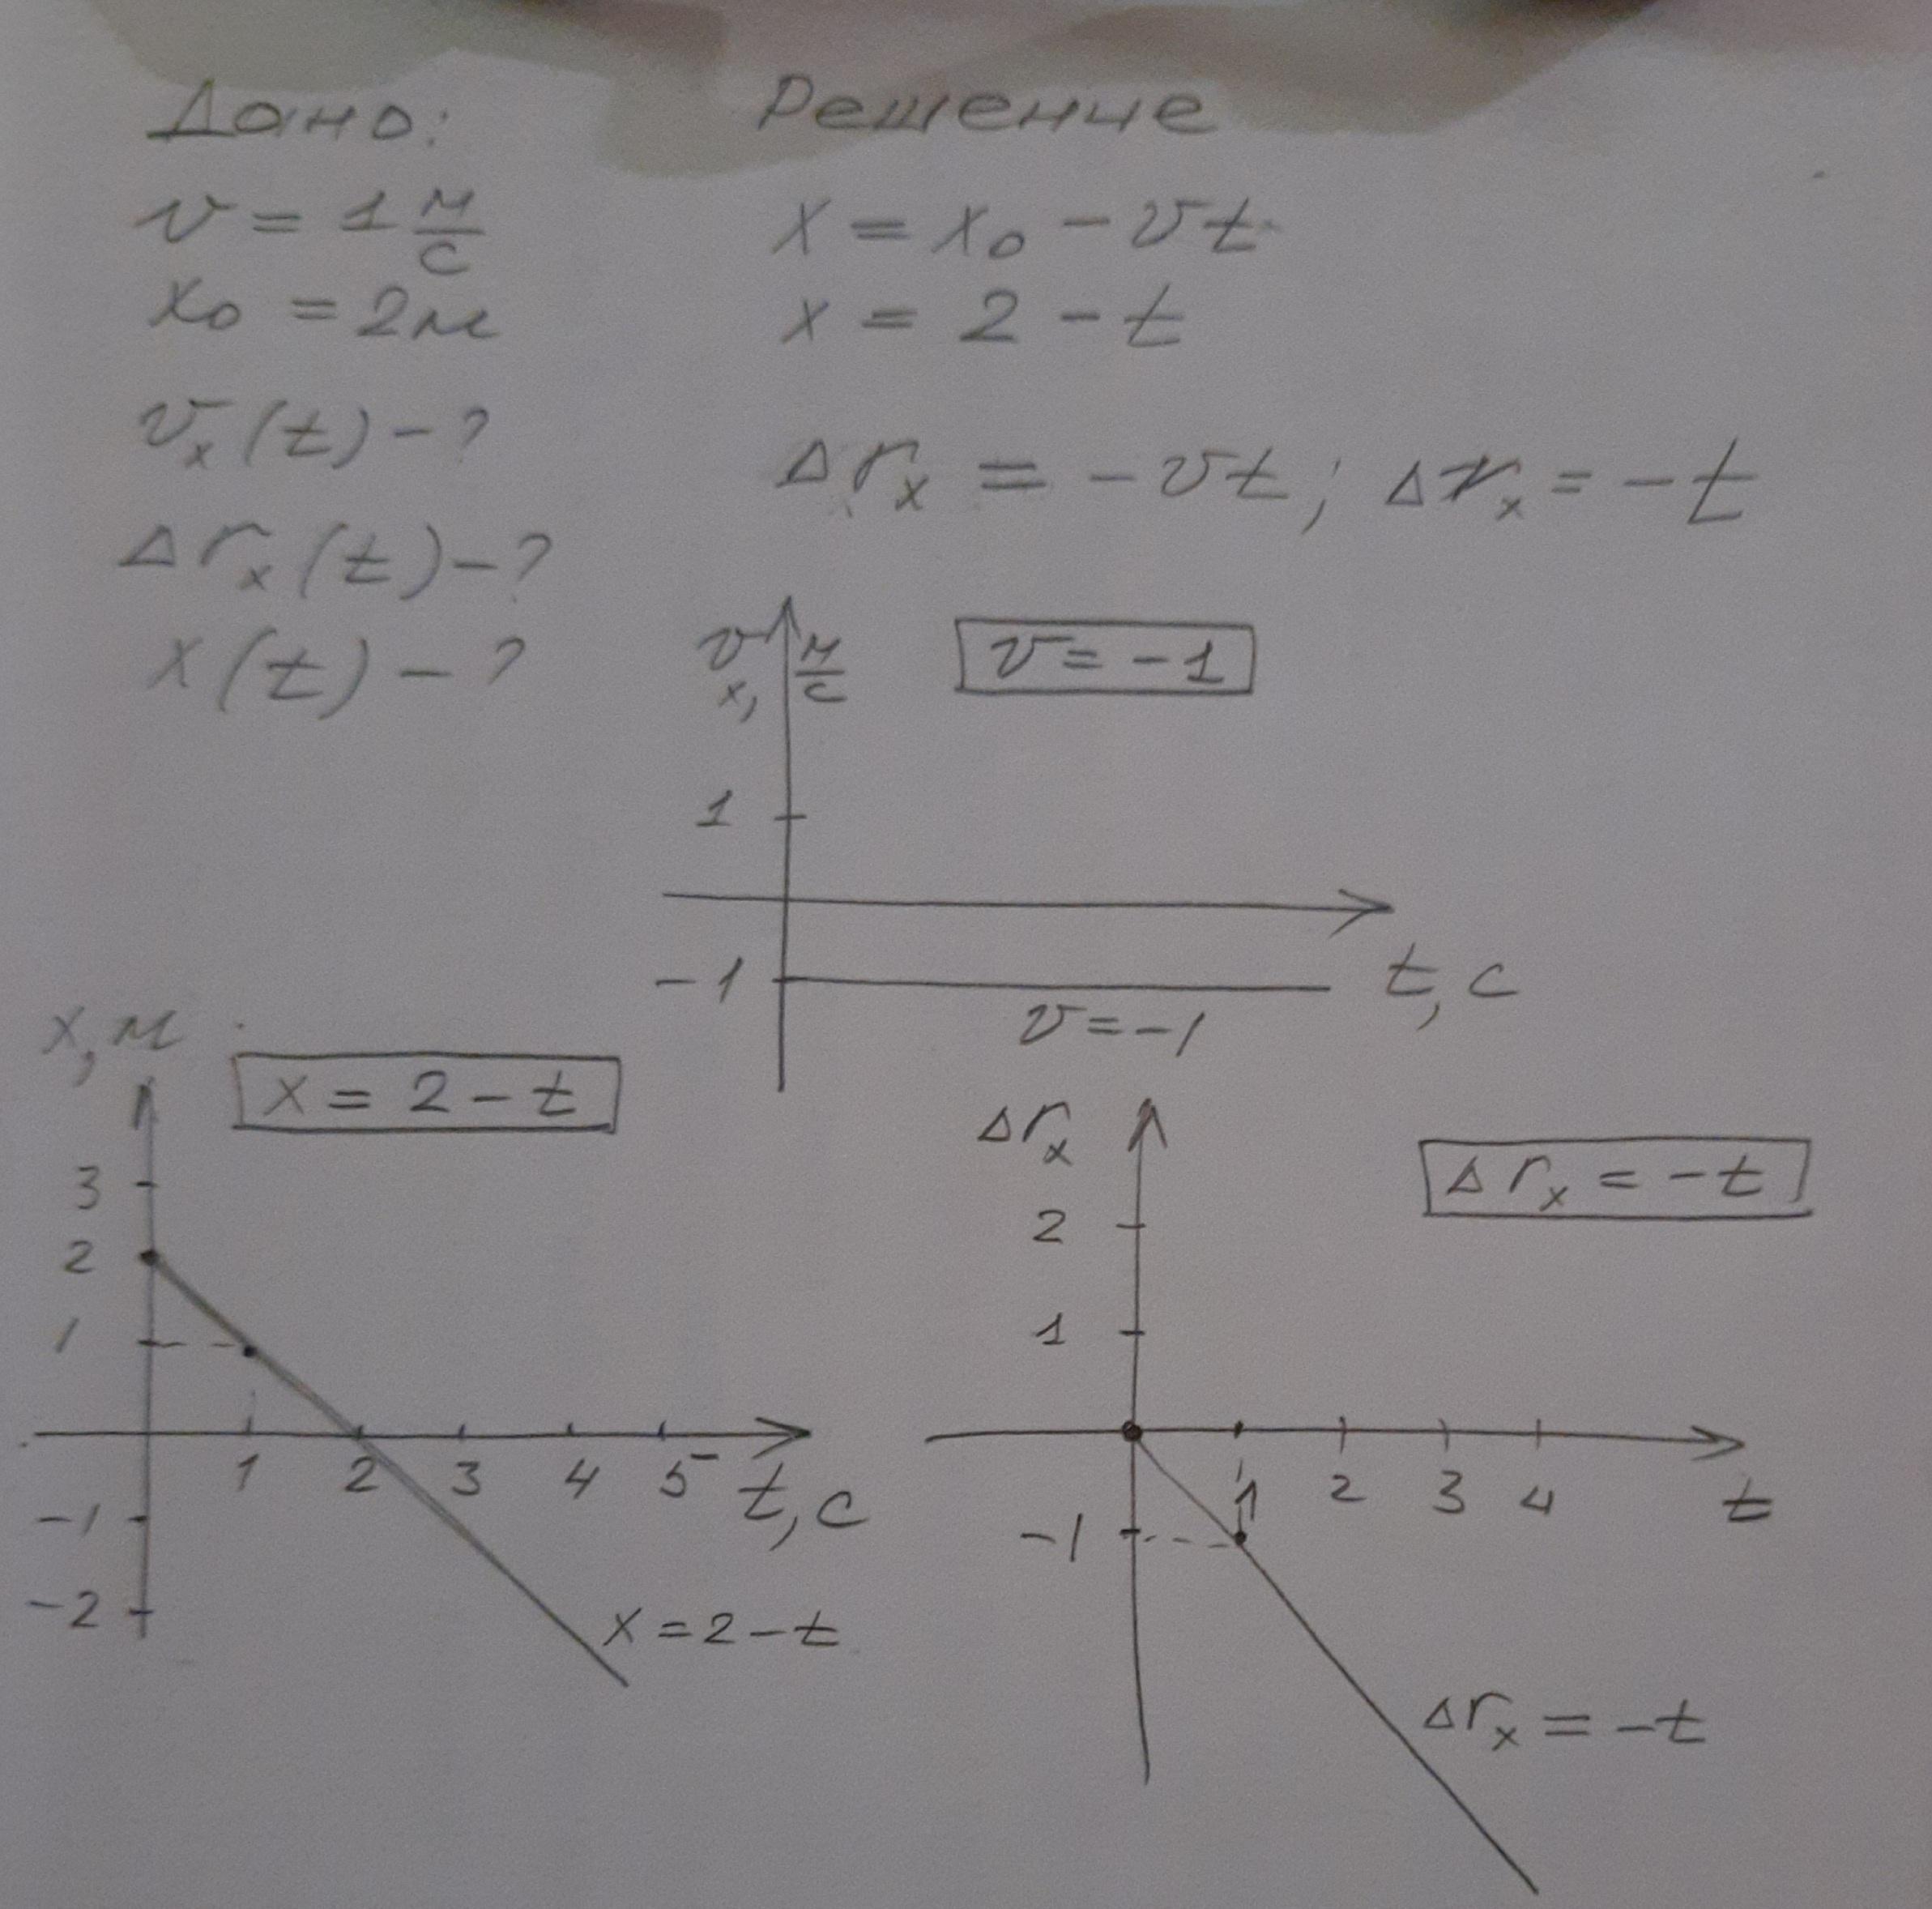 Дано:
v = 1 м/с
x₀ = 2м
vₓ(t) – ?
Δrₓ(t) – ?
x(t) – ?
Решение
x = x₀ – vt
x = 2 – t
Δrₓ = – vt; Δrₓ = – t
vₓ, м/с
v = – 1
1
– 1
t, с
v = – 1
x, м
x = 2 – t
3
2
1
1 2 3 4 5 t, с
– 1
– 2
x = 2 – t
Δrₓ
Δrₓ = – t
2
1
1 2 3 4 t
– 1
Δrₓ = – t